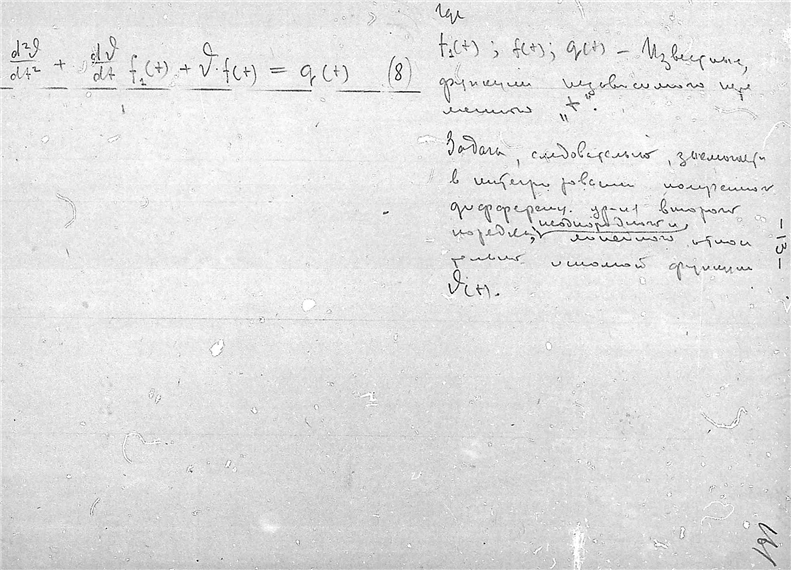 d²ϑ/dt² + dϑ/dt f₁(t) + ϑ·f(t) = q(t) (8)
где
f₁(t); f(t); q(t) – Известные
функции независимого пере
менного „t“.
Задача, следовательно, заключается
в интегрировании полученного
дифференц. ур-ия второго
порядка, неоднородного и
линейного относи
тельно искомой функции
ϑ(t).
-13-